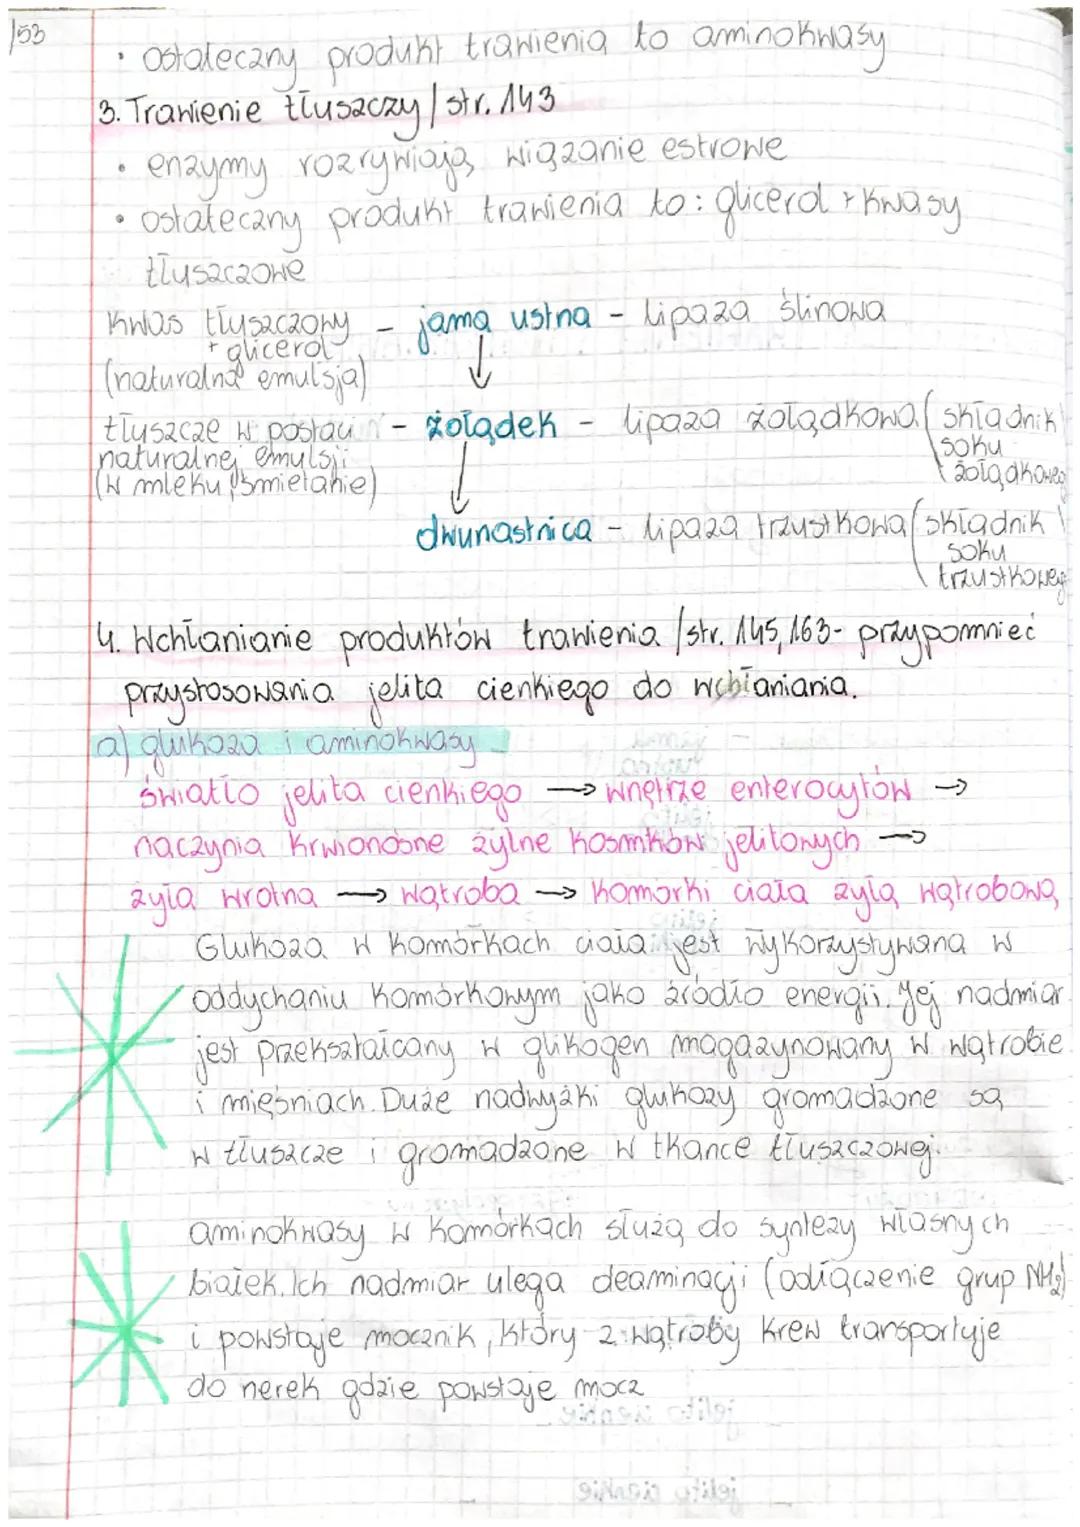 /53
• ostateczny produkt trawienia to aminokwasy
3. Trawienie tłuszczy / str. 143
• enzymy rozrywiają wiązanie estrowe
• ostateczny produkt trawienia to: glicerol + kwasy
tłuszczowe
kwas tłuszczowy - jama ustna - lipaza ślinowa
+ glicerol
(naturalna emulsja)
tłuszcze w postaci - żołądek - lipaza żołądkowa (składnik
naturalnej emulsji soku
(w mleku, śmietanie) żołądkoweg
dwunastnica - lipaza trzustkowa (składnik
soku
trzustkoweg
4. Wchłanianie produktów trawienia / str. 145, 163 - przypomnieć
przystosowania jelita cienkiego do wchłaniania.
a) glukoza i aminokwasy
światło jelita cienkiego → wnętrze enterocytów →
naczynia krwionośne żylne kosmków jelitowych →
żyła wrotna → wątroba → komórki ciała żyłą wątrobową
Glukoza w komórkach ciała jest wykorzystywana w
oddychaniu komórkowym jako źródło energii. Jej nadmiar
jest przekształcany w glikogen magazynowany w wątrobie
i mięśniach. Duże nadwyżki glukozy gromadzone są
w tłuszcze i gromadzone w tkance tłuszczowej.
aminokwasy w komórkach służą do syntezy własnych
białek. Ich nadmiar ulega deaminacji (odłączenie grup NH₂)
i powstaje mocznik, który z wątroby krew transportuje
do nerek gdzie powstaje mocz